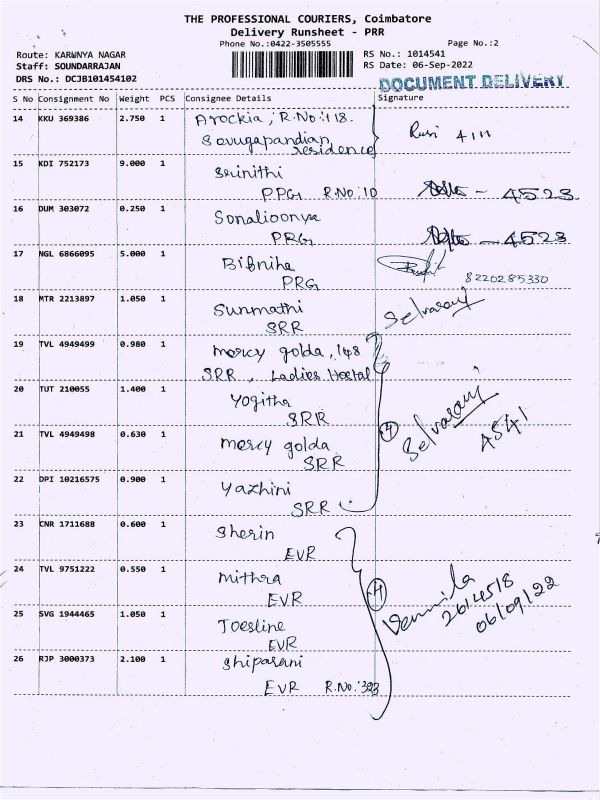 THE PROFESSIONAL COURIERS, Coimbatore
Delivery Runsheet - PRR
Phone No.:0422-3505555
Page No.:2
Route: KARUNYA NAGAR
RS No.: 1014541
Staff: SOUNDARRAJAN
RS Date: 06-Sep-2022
DRS No.: DCJB101454102
DOCUMENT DELIVERY
S No Consignment No Weight PCS Consignee Details Signature
14 KKU 369386 2.750 1 Arockia, R.No:118.
Savugapandian
residence
15 KDI 752173 9.000 1 Srinithi
PPG R.No:10 4523
16 DUM 303072 0.250 1 Sonalioonya
PRG 4523
17 NGL 6866095 5.000 1 Bifniha
PRG 8220285330
18 MTR 2213897 1.050 1 Sunmathi Selvarani
SRR
19 TVL 4949499 0.980 1 mercy golda, 148
SRR, Ladies Hostal
20 TUT 210055 1.400 1 Yogitha
SRR
4 Selvarani
4541
21 TVL 4949498 0.630 1 mercy golda
SRR
22 DPI 10216575 0.900 1 Yazhini
SRR
23 CNR 1711688 0.600 1 Sherin
EVR
24 TVL 9751222 0.550 1 mithra
EVR
4 Vennila
2614518
06/09/22
25 SVG 1944465 1.050 1 Joesline
EVR
26 RJP 3000373 2.100 1 Shiparani
EVR R.No:393